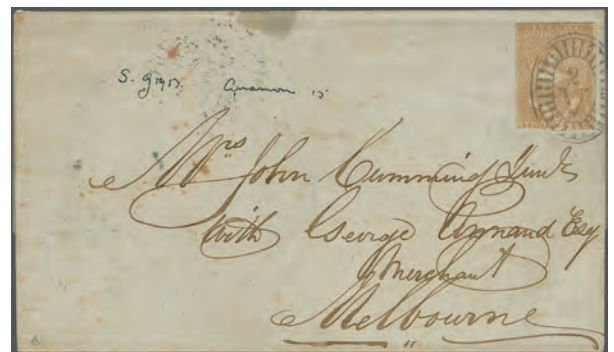 2
V
S. g
Mrs John Cumming Junr
With George Annand Esq
Merchant
Melbourne